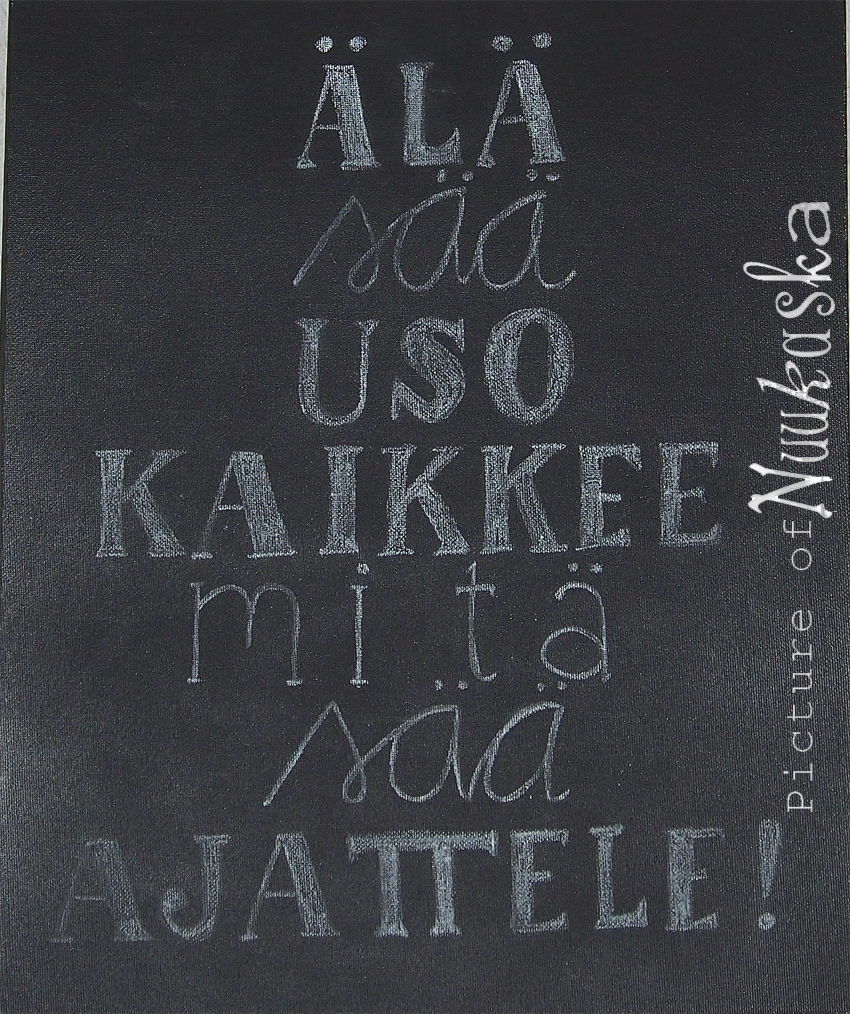 ÄLÄ
sää
USO
KAIKKEE
mitä
sää
AJATTELE!
Picture of Nuukaska